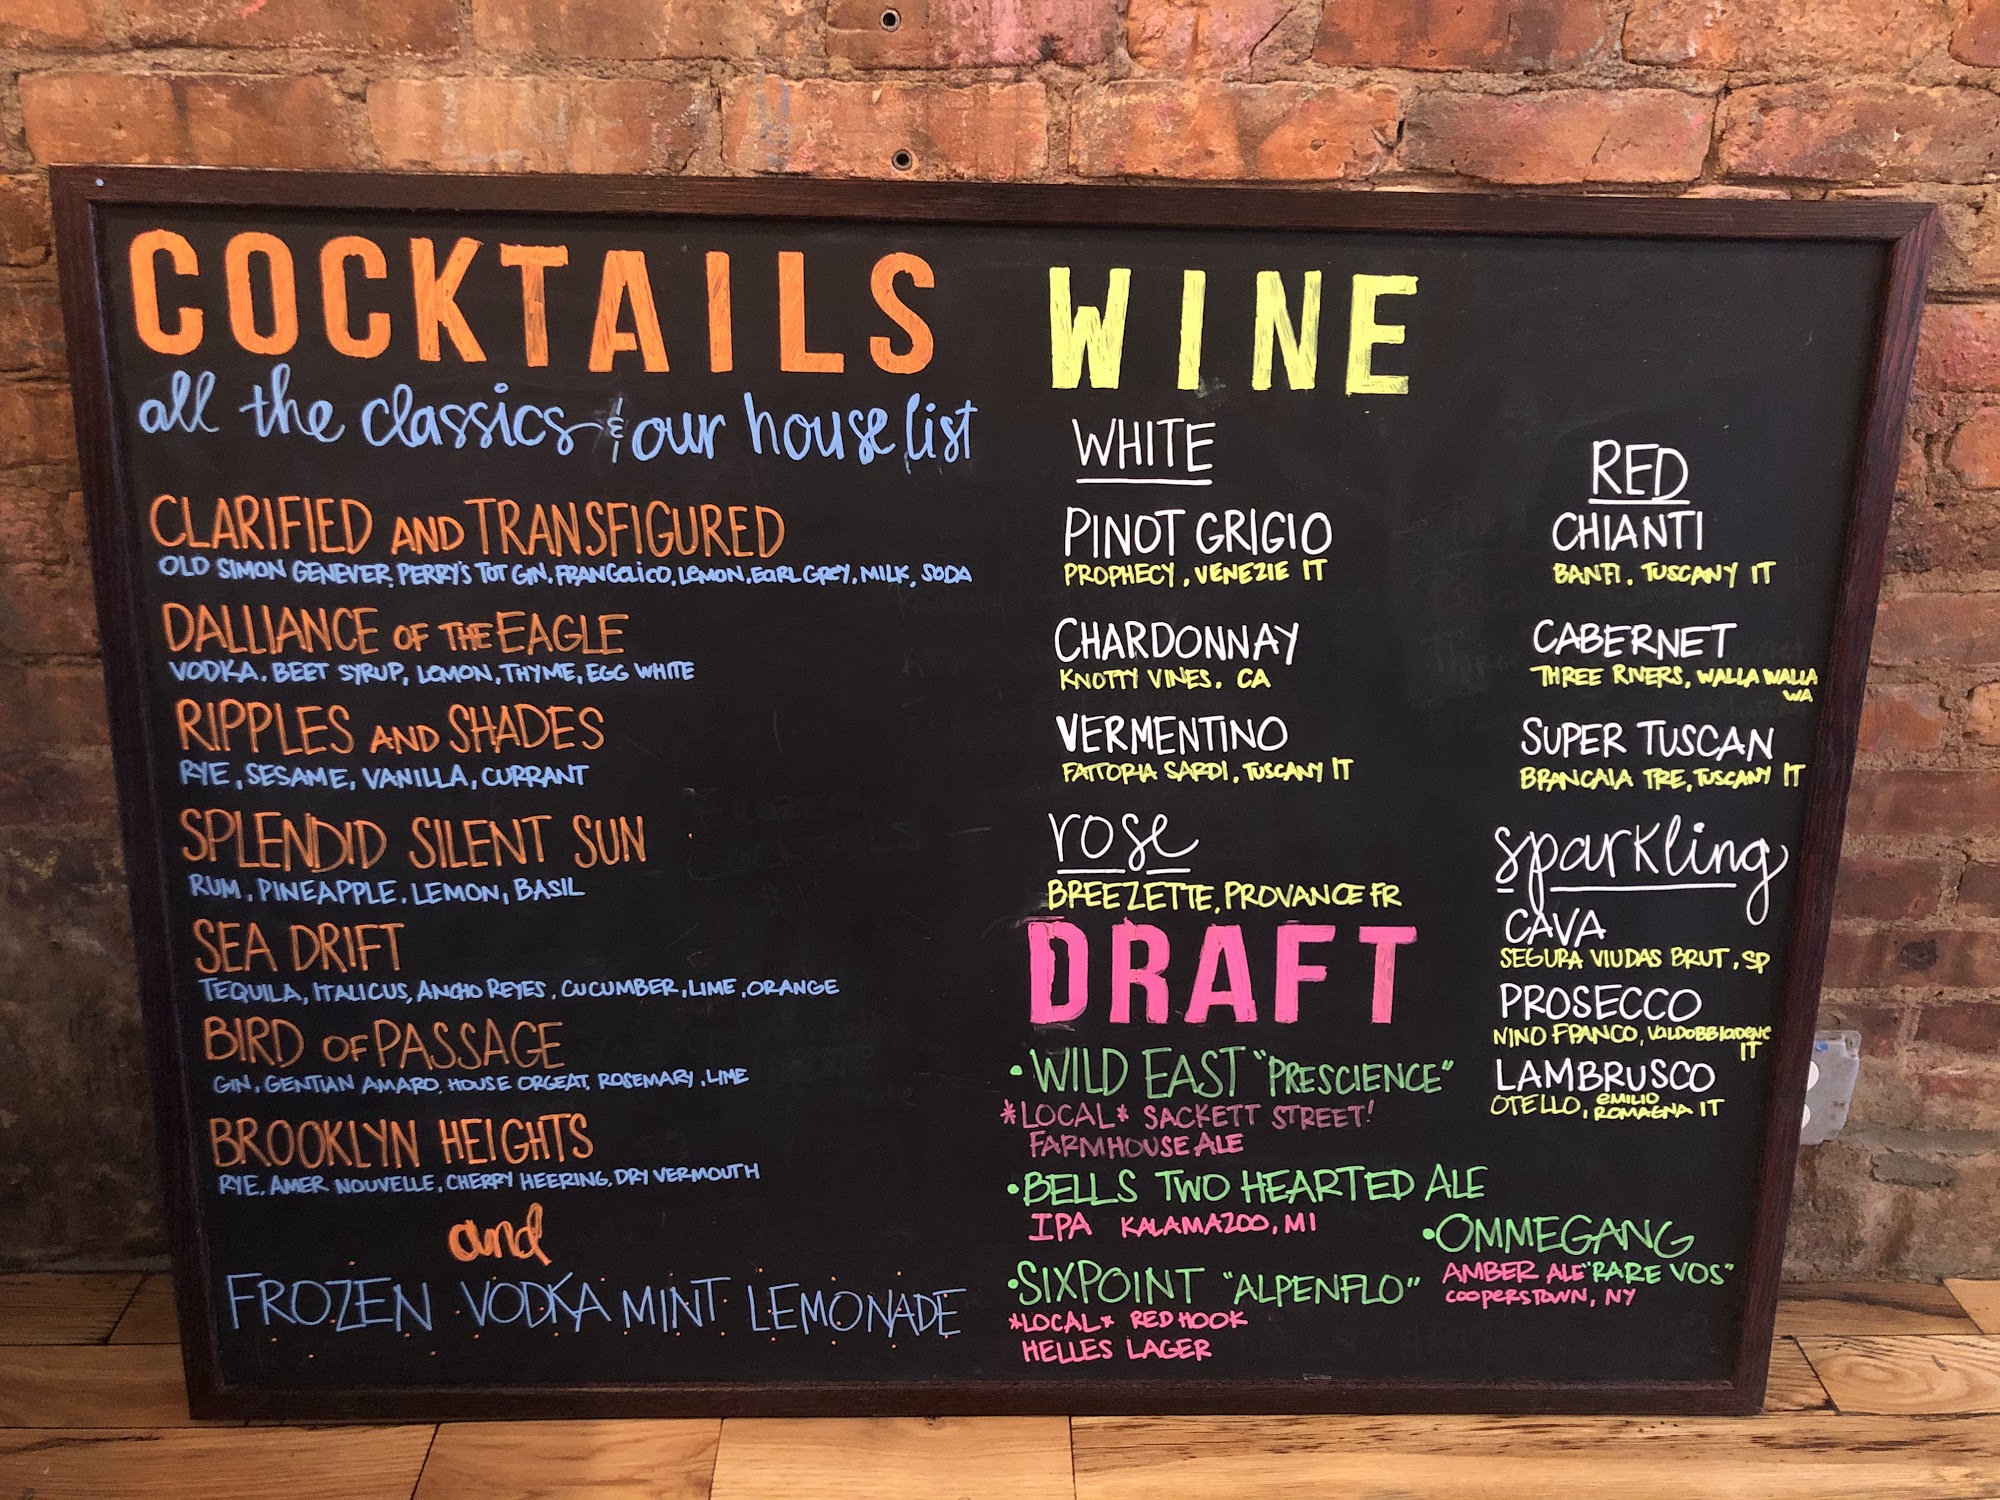 COCKTAILS
all the classics & our house list
CLARIFIED AND TRANSFIGURED
OLD SIMON GENEVER, PERRY'S TOT GIN, FRANGELICO, LEMON, EARL GREY, MILK, SODA
DALLIANCE OF THE EAGLE
VODKA, BEET SYRUP, LEMON, THYME, EGG WHITE
RIPPLES AND SHADES
RYE, SESAME, VANILLA, CURRANT
SPLENDID SILENT SUN
RUM, PINEAPPLE, LEMON, BASIL
SEA DRIFT
TEQUILA, ITALICUS, ANCHO REYES, CUCUMBER, LIME, ORANGE
BIRD OF PASSAGE
GIN, GENTIAN AMARO, HOUSE ORGEAT, ROSEMARY, LIME
BROOKLYN HEIGHTS
RYE, AMER NOUVELLE, CHERRY HEERING, DRY VERMOUTH
and
FROZEN VODKA MINT LEMONADE
WINE
WHITE
PINOT GRIGIO
PROPHECY, VENEZIE IT
CHARDONNAY
KNOTTY VINES, CA
VERMENTINO
FATTORIA SARDI, TUSCANY IT
rose
BREEZETTE, PROVANCE FR
RED
CHIANTI
BANFI, TUSCANY IT
CABERNET
THREE RIVERS, WALLA WALLA
WA
SUPER TUSCAN
BRANCAIA TRE, TUSCANY IT
sparkling
CAVA
SEGURA VIUDAS BRUT, SP
PROSECCO
NINO FRANCO, VALDOBBIADENE
IT
LAMBRUSCO
OTELLO, EMILIO
ROMAGNA IT
DRAFT
• WILD EAST "PRESCIENCE"
*LOCAL* SACKETT STREET!
FARMHOUSE ALE
• BELLS TWO HEARTED ALE
IPA KALAMAZOO, MI
• SIXPOINT "ALPENFLO"
*LOCAL* RED HOOK
HELLES LAGER
• OMMEGANG
AMBER ALE "RARE VOS"
COOPERSTOWN, NY